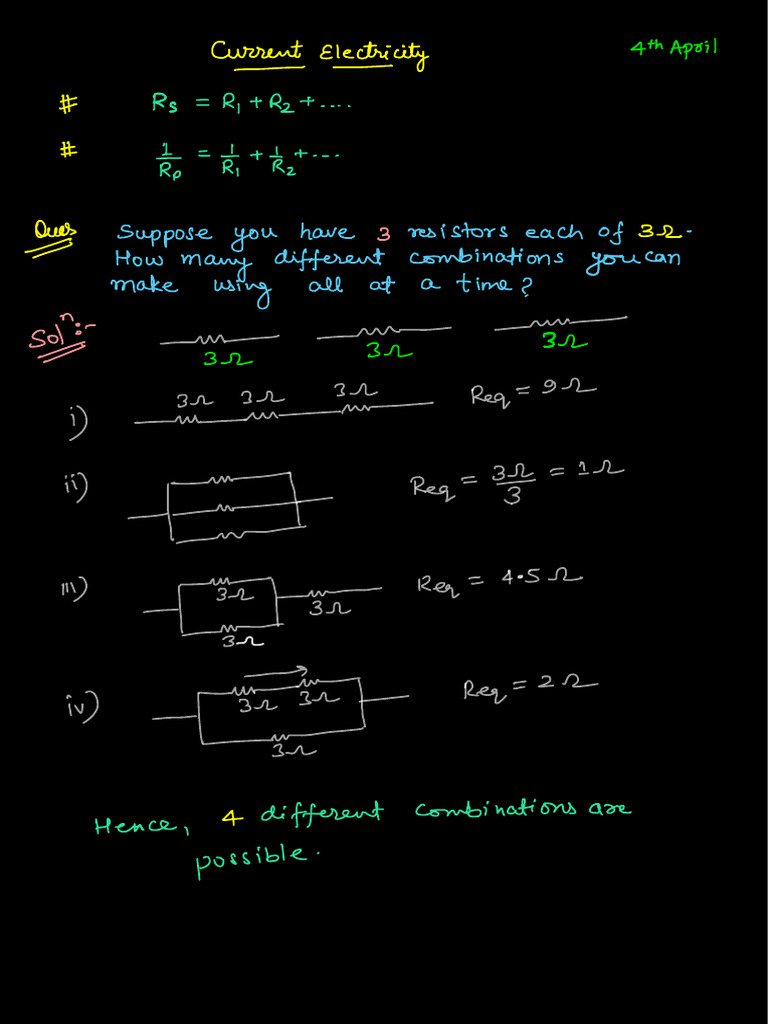 Current Electricity
4th April
# Rs = R1 + R2 + ....
# 1/Rp = 1/R1 + 1/R2 + ...
Ques Suppose you have 3 resistors each of 3Ω.
How many different combinations you can
make using all at a time?
Solⁿ:-
3Ω 3Ω 3Ω
3Ω 3Ω 3Ω
i) Req = 9Ω
ii) Req = 3Ω/3 = 1Ω
iii) Req = 4.5Ω
3Ω 3Ω
3Ω
iv) Req = 2Ω
3Ω 3Ω
3Ω
Hence, 4 different combinations are
possible.